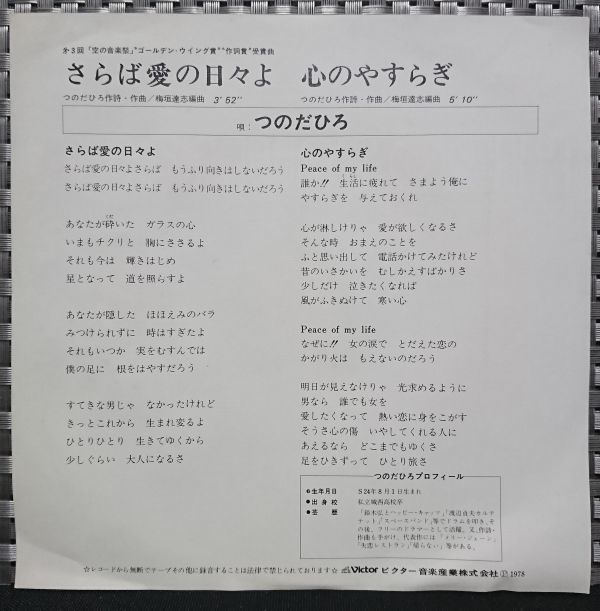 第3回「空の音楽祭」"ゴールデン・ウイング賞""作詞賞"受賞曲
さらば愛の日々よ　心のやすらぎ
つのだひろ作詩・作曲／梅垣達志編曲　3′52″　つのだひろ作詩・作曲／梅垣達志編曲　5′10″
唄：つのだひろ
さらば愛の日々よ
さらば愛の日々よさらば　もうふり向きはしないだろう
さらば愛の日々よさらば　もうふり向きはしないだろう
あなたが砕いた　ガラスの心
いまもチクリと　胸にささるよ
それも今は　輝きはじめ
星となって　道を照らすよ
あなたが隠した　ほほえみのバラ
みつけられずに　時はすぎたよ
それもいつか　実をむすんでは
僕の足に　根をはやすだろう
すてきな男じゃ　なかったけれど
きっとこれから　生まれ変るよ
ひとりひとり　生きてゆくから
少しぐらい　大人になるさ
心のやすらぎ
Peace of my life
誰か!!　生活に疲れて　さまよう俺に
やすらぎを　与えておくれ
心が淋しけりゃ　愛が欲しくなるさ
そんな時　おまえのことを
ふと思い出して　電話かけてみたけれど
昔のいさかいを　むしかえすばかりさ
少しだけ　泣きたくなれば
風がふきぬけて　寒い心
Peace of my life
なぜに!!　女の涙で　とだえた恋の
かがり火は　もえないのだろう
明日が見えなけりゃ　光求めるように
男なら　誰でも女を
愛したくなって　熱い恋に身をこがす
そうさ心の傷　いやしてくれる人に
あえるなら　どこまでもゆくさ
足をひきずって　ひとり旅さ
つのだひろプロフィール
●生年月日　S24年8月1日生まれ
●出身校　私立城西高校卒
●芸歴　「鈴木弘とハッピー・キャッツ」「渡辺貞夫カルテ
テット」「スペースバンド」等でドラムを叩き、そ
の後、フリーのドラマーとして活躍。又、作詩・
作曲も手がけ、代表作には「メリー・ジェーン」
「失恋レストラン」「帰らない」等がある。
☆レコードから無断でテープその他に録音することは法律で禁じられております☆　Victor ビクター音楽産業株式会社 Ⓟ 1978